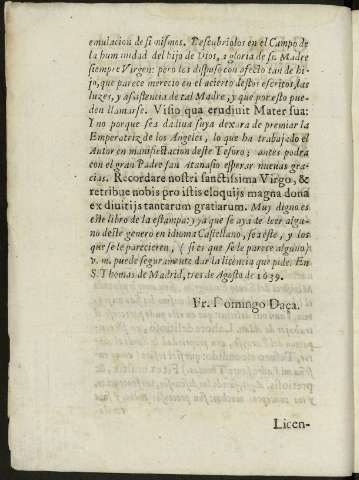 emulacion de si mismos. Descubriolos en el Campo de
la humanidad del hijo de Dios, a gloria de su Madre
siempre Virgen: pero los dispuso con afecto tan de hi-
jo, que parece merecio en el acierto destos escritos, las
luzes, y assistencia de tal Madre, y que por esto pue-
den llamarse. Visio qua erudiuit Mater sua:
Y no porque sea dadiua suya dexara de premiar la
Emperatriz de los Angeles, lo que ha trabajado el
Autor en manifestacion deste Tesoro; antes podra
con el gran Padre san Atanasio esperar nueuas gra-
cias. Recordare nostri sanctissima Virgo, &
retribue nobis pro istis eloquijs magna dona
ex diuitijs tantarum gratiarum. Muy digno es
este libro de la estampa: y ya que se aya de leer algu-
no deste genero en idioma Castellano, sea este, y los
que se le parecieren, (si es que se le parece alguno)
v. m. puede seguramente dar la licencia que pide. En
S. Thomas de Madrid, tres de Agosto de 1639.
Fr. Domingo Daça.
Licen-